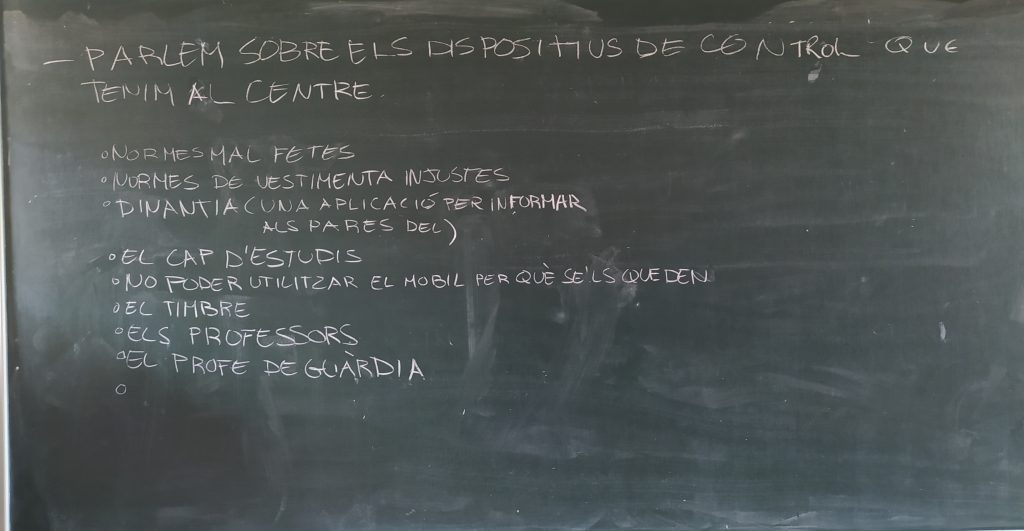 — PARLEM SOBRE ELS DISPOSITIUS DE CONTROL QUE
TENIM AL CENTRE.
° NORMES MAL FETES
° NORMES DE VESTIMENTA INJUSTES
° DINANTIA (UNA APLICACIÓ PER INFORMAR
ALS PARES DEL)
° EL CAP D'ESTUDIS
° NO PODER UTILITZAR EL MOBIL PER QUÈ SE'LS QUEDEN
° EL TIMBRE
° ELS PROFESSORS
° EL PROFE DE GUÀRDIA
°